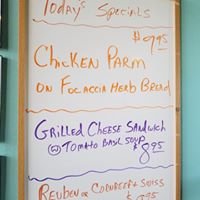 Today's Specials
$9.95
Chicken Parm
on Focaccia Herb Bread
Grilled Cheese Sandwich
w Tomato Basil Soup $8.95
Reuben Cornbeef & Swiss